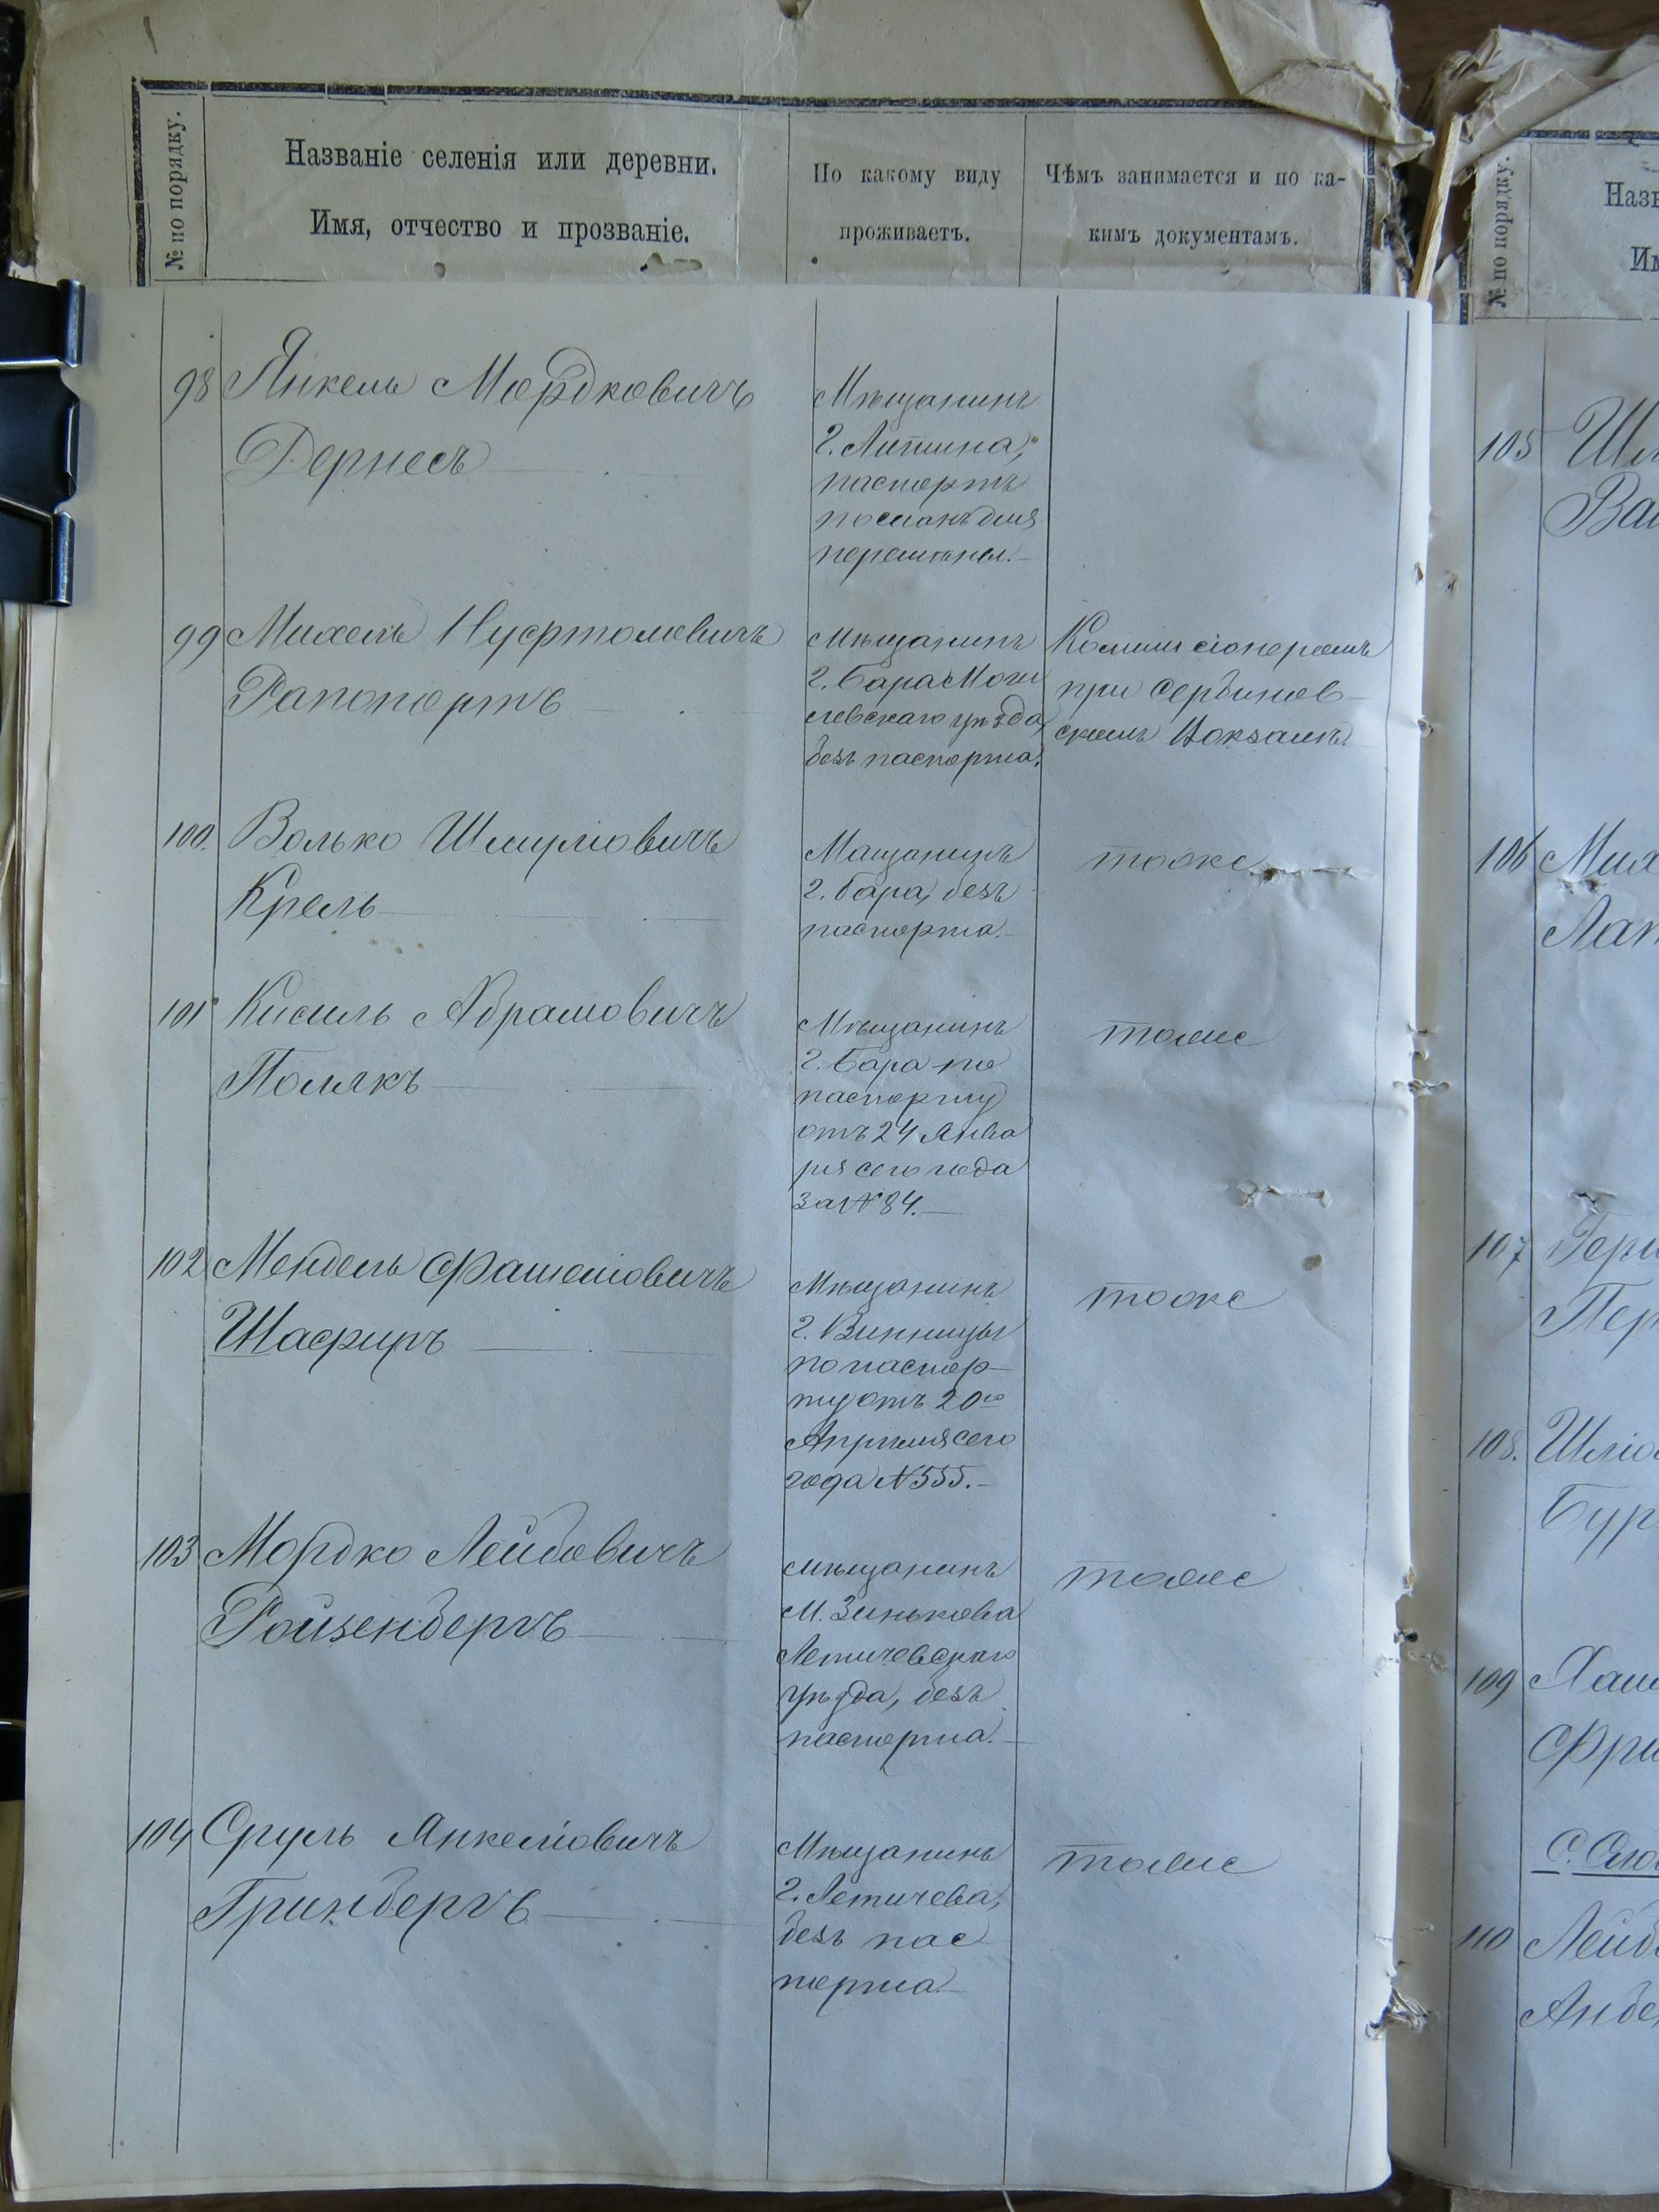 № по порядку.
Названіе селенія или деревни.
Имя, отчество и прозваніе.
По какому виду
проживаетъ.
Чѣмъ занимается и по ка-
кимъ документамъ.
98 Янкель Мордковичъ
Дернесъ
Мѣщанинъ
г. Литина,
паспортъ
посланъ для
перемѣны.
99 Михель Нуфтоловичъ
Рапопортъ
Мѣщанинъ
г. Бара Моги
левскаго уѣзда,
безъ паспорта.
Коммисіонеромъ
при Сербинов-
скомъ Вокзалѣ.
100. Волько Шмуліовичъ
Крель
Мащанинъ
г. Бара, безъ
паспорта.
тоже
101 Кисиль Абрамовичъ
Полякъ
Мѣщанинъ
г. Бара по
паспорту
отъ 24 Янва
ря сего года
за № 84.
тоже
102 Мендель Фашеліовичъ
Шафиръ
Мѣщанинъ
г. Винницы
по паспор-
ту отъ 20го
Апрѣля сего
года № 555.
тоже
103 Мордко Лейбовичъ
Ройзенбергъ
мѣщанинъ
М. Зинькова
Летичевскаго
уѣзда, безъ
паспорта.
тоже
104 Сруль Янкеліовичъ
Гринбергъ
Мѣщанинъ
г. Летичева,
безъ пас
порта.
тоже
№ по порядку.
Назв
Им
105 Шл
Ва
106 Мих
Лап
107 Герш
Пер
108. Шліо
Бур
109 Хаи
Фри
110 Лейб
Анбе